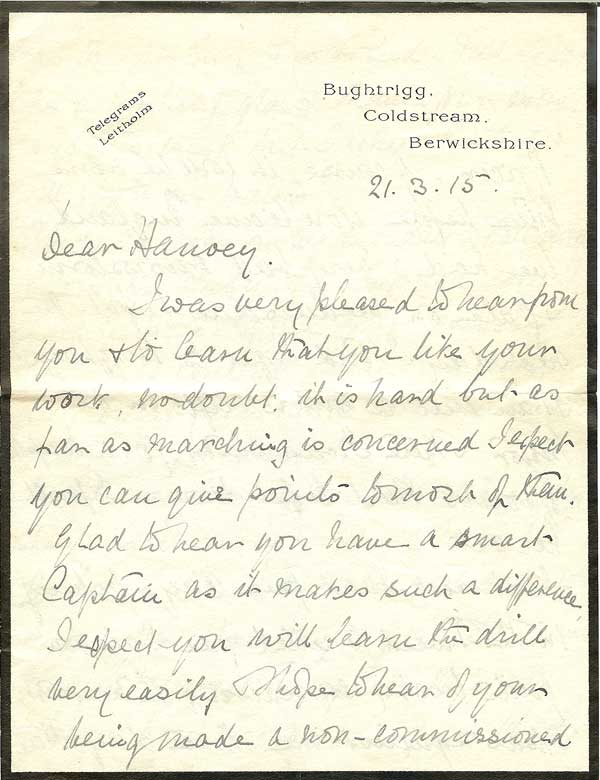 Telegrams
Leitholm
Bughtrigg.
Coldstream.
Berwickshire.
21. 3. 15.
Dear Hanvey.
I was very pleased to hear from
you & to learn that you like your
work, no doubt. it is hard but as
far as marching is concerned I expect
you can give points to most of them.
Glad to hear you have a smart
Captain as it makes such a difference,
I expect you will learn the drill
very easily & hope to hear of your
being made a non-commissioned